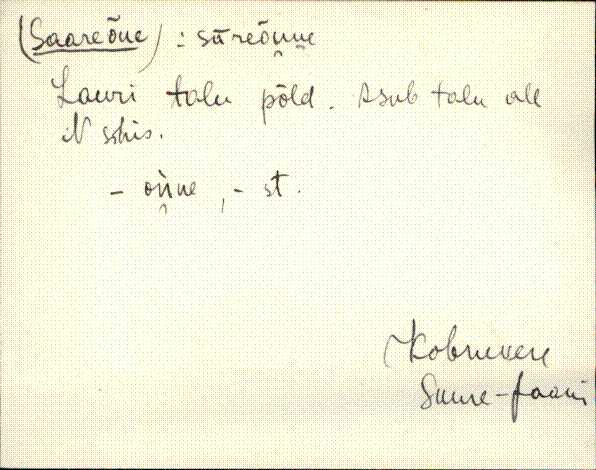 (Saareõue) : sāreõu̬u̬e
Lauri talu põld. Asub talu all
N sihis.
– où̬ue , – st.
Kobruvere
Suure-Jaani